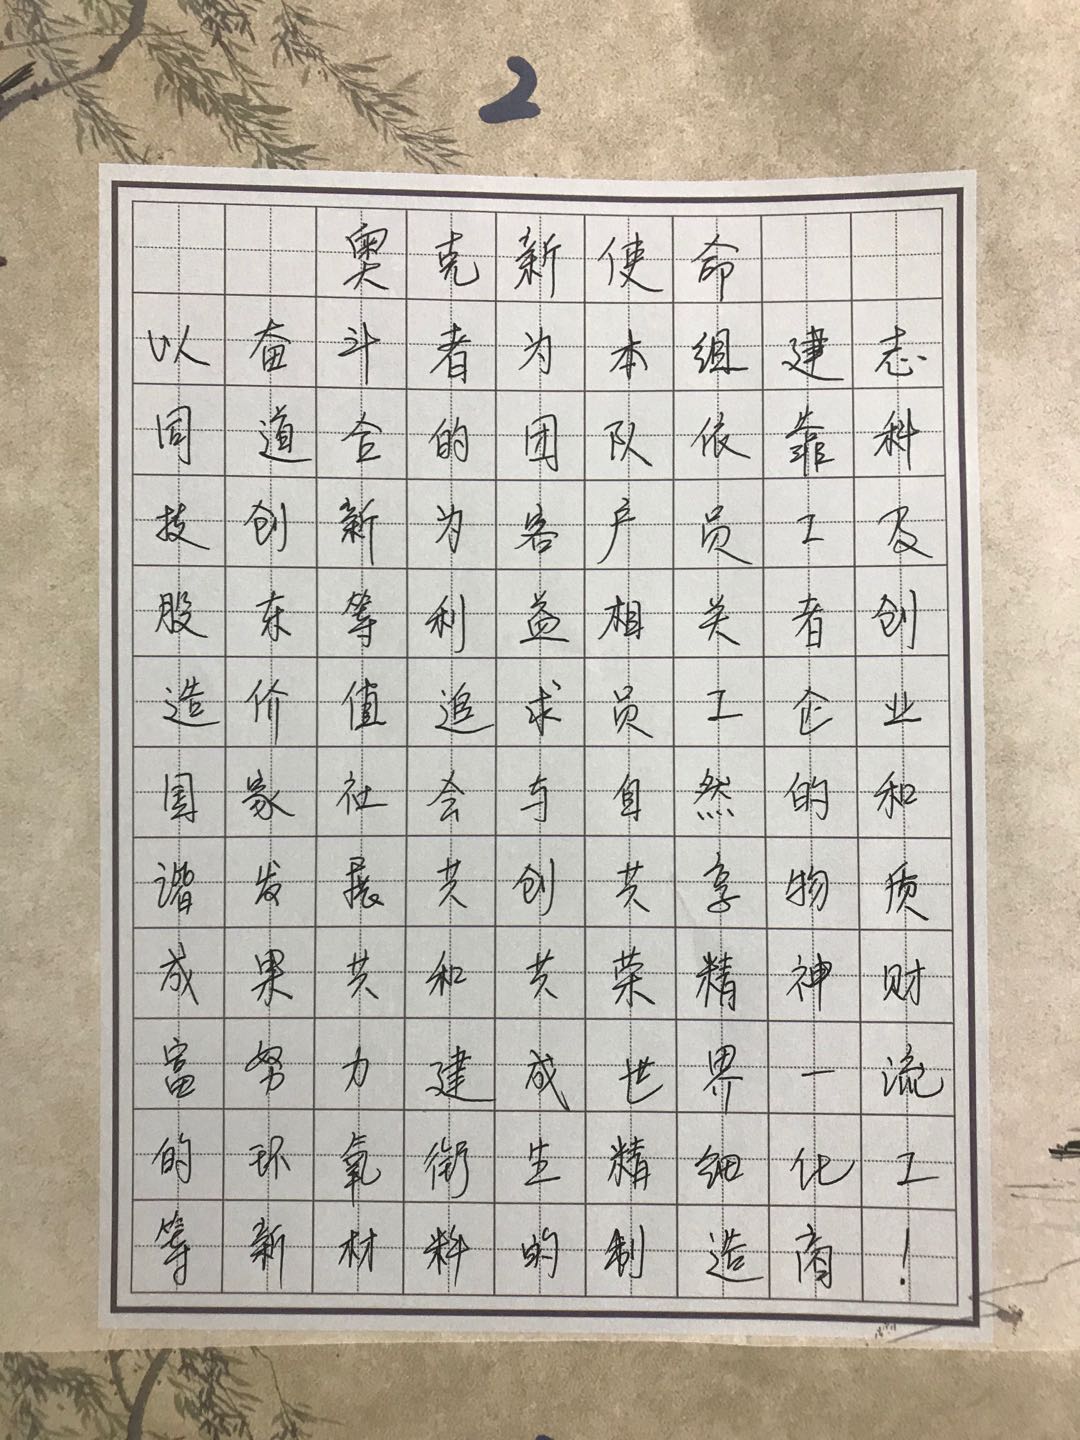 2
奥克新使命
以奋斗者为本组建志
同道合的团队依靠科
技创新为客户员工及
股东等利益相关者创
造价值追求员工企业
国家社会与自然的和
谐发展共创共享物质
成果共和共荣精神财
富努力建成世界一流
的环氧衍生精细化工
等新材料的制造商！